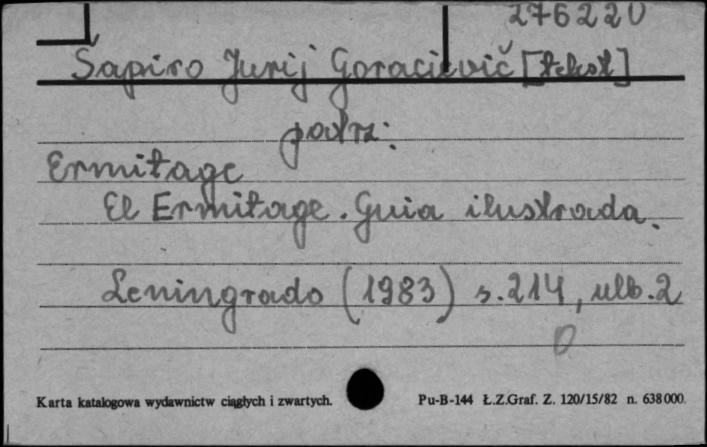 276220
Šapiro Jurij Goracievič [tekst]
patrz:
Ermitage
El Ermitage. Guia ilustrada.
Leningrado (1983) s. 214, nlb. 2
0
Karta katalogowa wydawnictw ciągłych i zwartych.
Pu-B-144 Ł.Z.Graf. Z. 120/15/82 n. 638000.